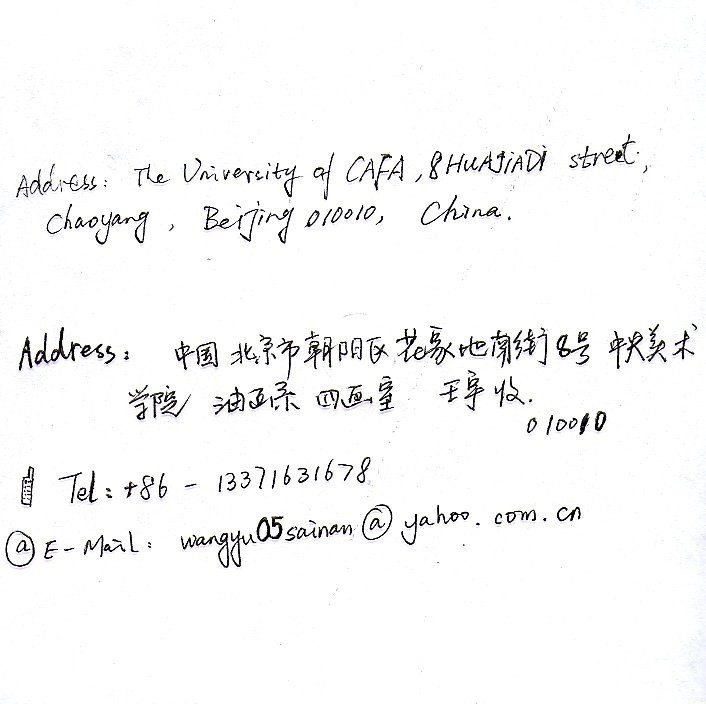 Address: The University of CAFA, 8 HUAJiADi street,
Chaoyang, Beijing 010010, China.
Address: 中国北京市朝阳区花家地南街8号 中央美术
学院 油画系 四画室 王宇 收.
010010
Tel: +86 - 13371631678
@ E-Mail: wangyu05sainan@yahoo.com.cn